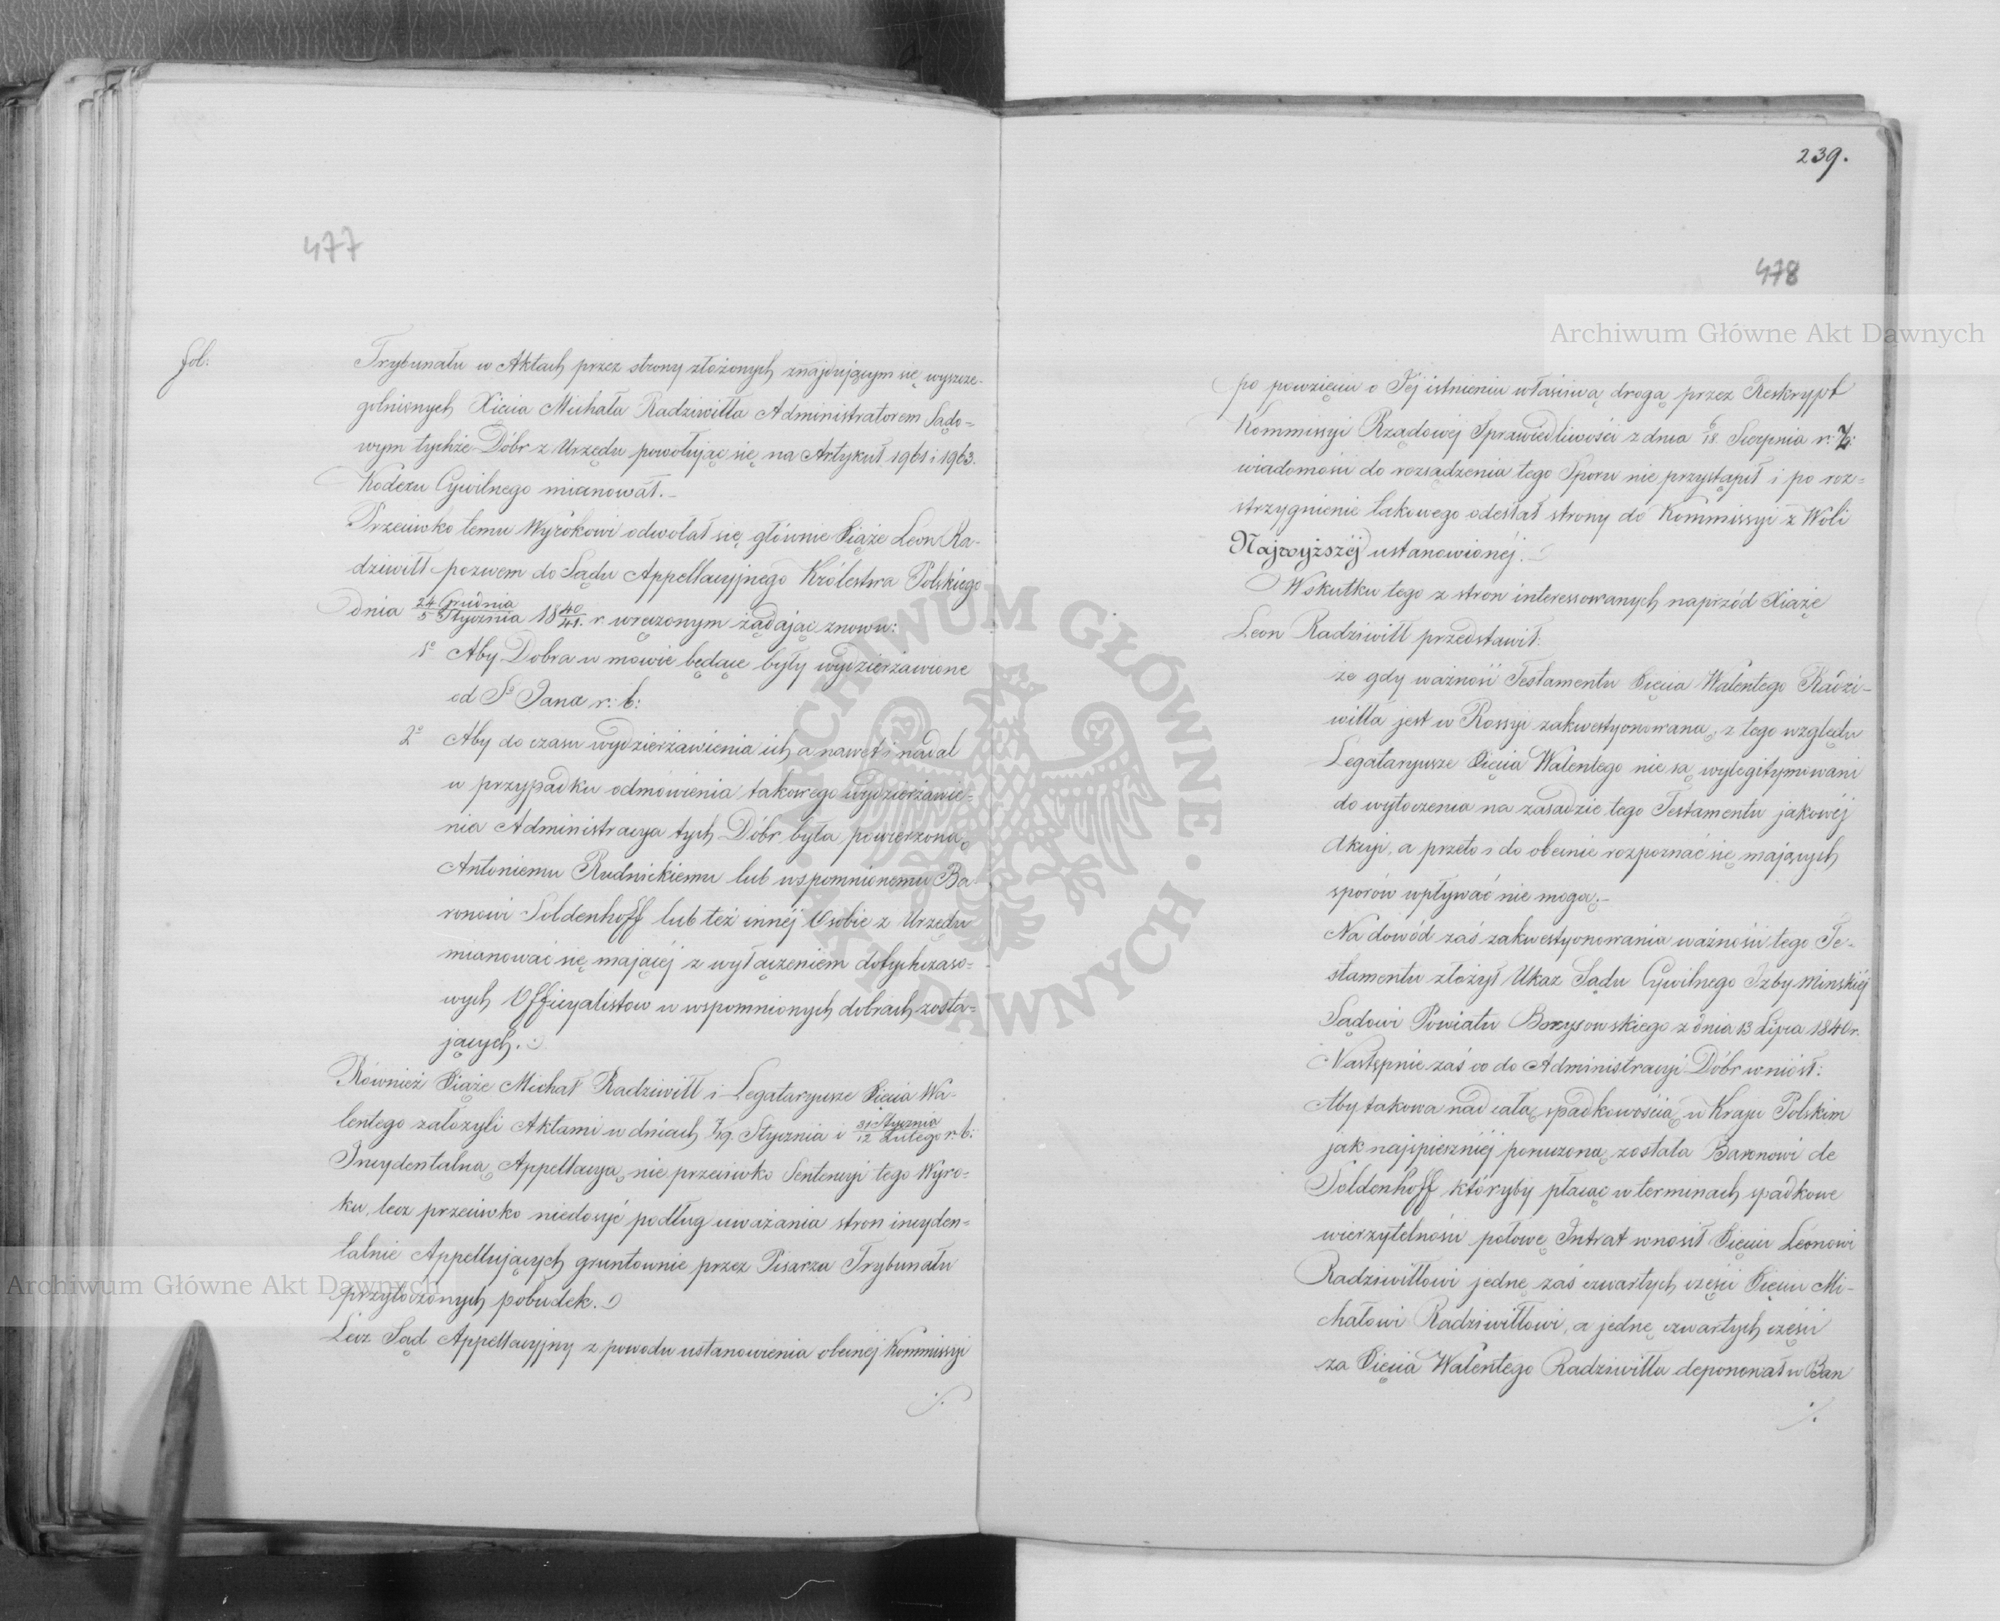 477
fol:
Trybunału w Aktach przez strony złożonych znajdującym się wyszcze-
gólnionych Xięcia Michała Radziwiłła Administratorem Sądo=
wym tychże Dóbr z Urzędu powołując się na Artykuł 1961 i 1963.
Kodexu Cywilnego mianował.–
Przeciwko temu Wyrokowi odwołał się głównie Xiąże Leon Ra-
dziwiłł pozwem do Sądu Appellacyjnego Królestwa Polskiego
dnia 24 Grudnia/5 Stycznia 18 40/41. r. wręczonym żądając znowu:
1o Aby Dobra w mowie będące były wydzierżawione
od So Jana r: b:
2o Aby do czasu wydzierżawienia ich a nawet i nadal
w przypadku odmówienia takowego wydzierżawie=
nia Administracya tych Dóbr była powierzona
Antoniemu Rudnickiemu lub wspomnionemu Ba
ronowi Soldenhoff lub też innéj Osobie z Urzędu
mianować się mającéj z wyłączeniem dotychczaso=
wych Officyalistow w wspomnionych dobrach zosta=
jących.
Również Xiąże Michał Radziwiłł i Legataryusze Xięcia Wa-
lentego założyli Aktami w dniach 7/19. Stycznia i 31 Stycznia/12 Lutego r. b:
Incydentalną Appellacyą nie przeciwko Sentencyi tego Wyro=
ku, lecz przeciwko niedosyć podług uważania stron incyden=
talnie Appellujących gruntownie przez Pisarza Trybunału
przytoczonych pobudek.
Lecz Sąd Appellacyjny z powodu ustanowienia obecnéj Kommissyi
./.
239.
478
po powzięciu o Jéj istnieniu właściwą drogą przez Reskrypt
Kommissyi Rządowéj Sprawiedliwości z dnia 6/18. Sierpnia r: b:
wiadomości do rozsądzenia tego Sporu nie przystąpił i po roz=
strzygnienie takowego odesłał strony do Kommissyi z Woli
Najwyższéj ustanowionéj.
Wskutku tego z stron interessowanych naprzód Xiąże
Leon Radziwiłł przedstawił:
że gdy ważność Testamentu Xięcia Walentego Radzi-
wiłła jest w Rossyi zakwestyonowaną, z tego względu
Legataryusze Xięcia Walentego nie są wylegitymowani
do wytoczenia na zasadzie tego Testamentu jakowéj
Akcyi, a przeto i do obecnie rozpoznać się mających
sporów wpływać nie mogą.–
Na dowód zaś zakwestyonowania ważności tego Te-
stamentu złożył Ukaz Sądu Cywilnego Izby Minskiéj
Sądowi Powiatu Borysowskiego z dnia 13 Lipca 1840 r.
Następnie zaś co do Administracyi Dóbr wniósł:
Aby takowa nad całą spadkowością w Kraju Polskim
jak najspieszniéj poruczoną została Baronowi de
Soldenhoff któryby płacąc w terminach spadkowe
wierzytelności połowę Intrat wnosił Xięciu Leonowi
Radziwiłłowi jedne zaś czwartych części Xięciu Mi-
chałowi Radziwiłłowi, a jednę czwartych części
za Xięcia Walentego Radziwiłła deponował w Ban
./.
Archiwum Główne Akt Dawnych
Archiwum Główne Akt Dawnych
ARCHIWUM GŁÓWNE · AKT DAWNYCH ·